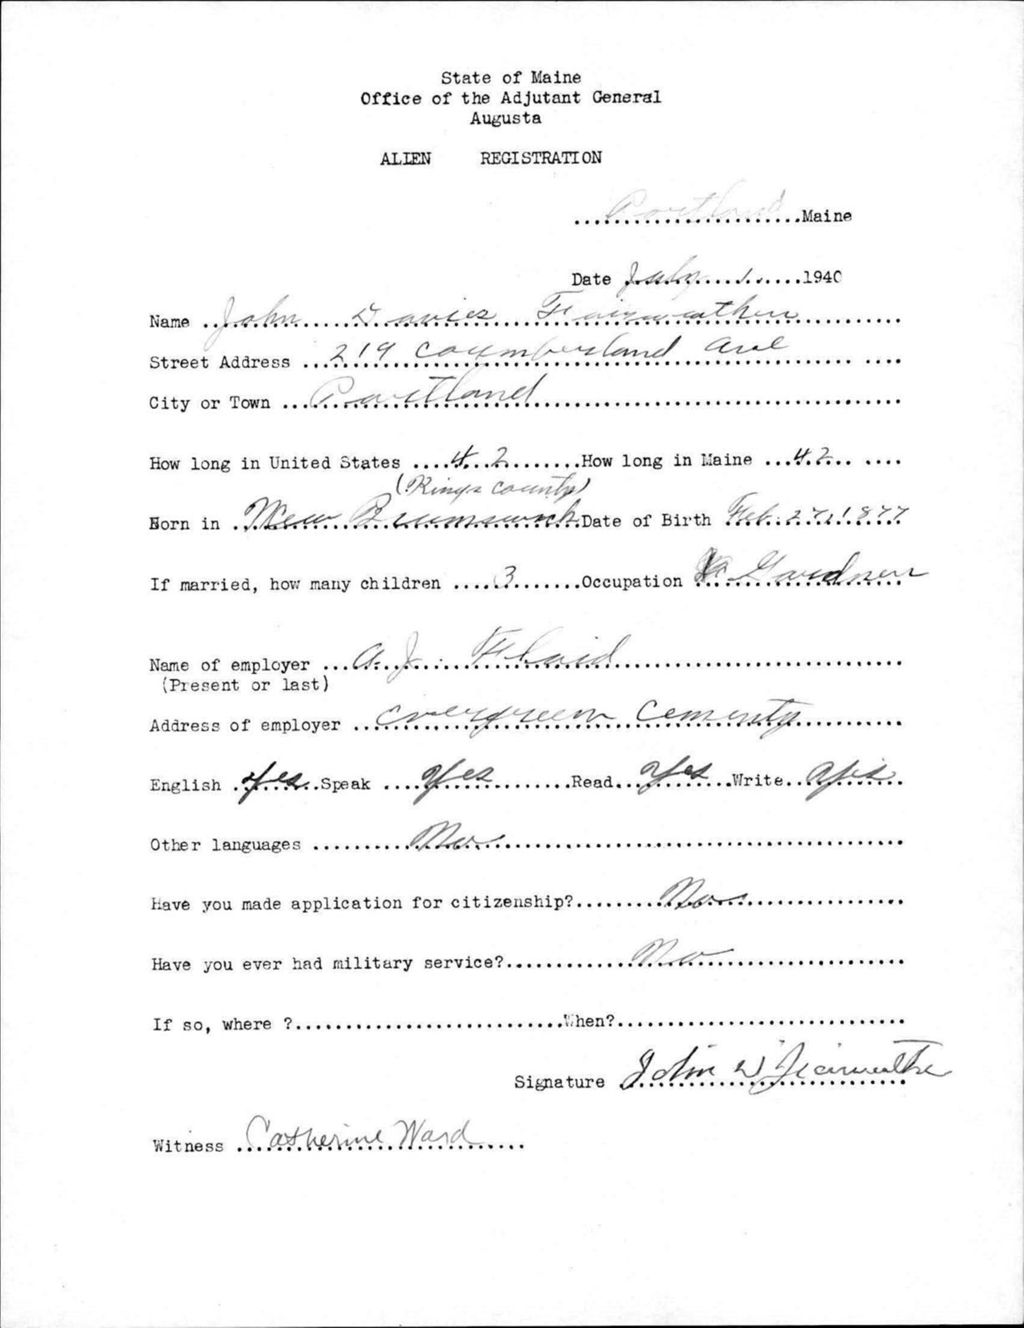 State of Maine
Office of the Adjutant General
Augusta
ALIEN REGISTRATION
Portland Maine
Date July 1 1940
Name John Davies Fairweather
Street Address 219 Coumberland Ave
City or Town Portland
How long in United States 42 How long in Maine 42
(Kings County)
Born in New Brunswick Date of Birth Feb. 27, 1877
If married, how many children 3 Occupation Gardner
Name of employer A. J. Floid
(Present or last)
Address of employer Evergreen Cementy
English Yes Speak Yes Read Yes Write Yes
Other languages No
Have you made application for citizenship? No
Have you ever had military service? No
If so, where ? When?
Signature John D Fairweather
Witness Catherine Ward